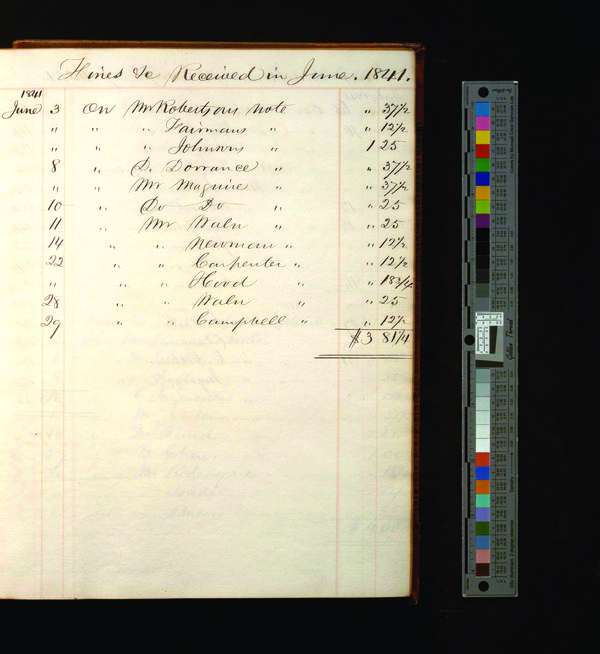 Fines &c Received in June. 1841.
1841
June 3 On Mr Robertsons note " 37 1/2
" " " Fairmans " " 12 1/2
" " " Johnsons " 1 25
8 " D. Dorrance " " 37 1/2
" " Mr Maguire " " 37 1/2
10 " Do Do " " 25
11 " Mr Waln " " 25
14 " " Newman " " 12 1/2
22 " " Carpenter " " 12 1/2
" " " Hood " " 18 3/4
28 " " Waln " " 25
29 " " Campbell " " 12 1/2
$3 81 1/4
Golden Thread